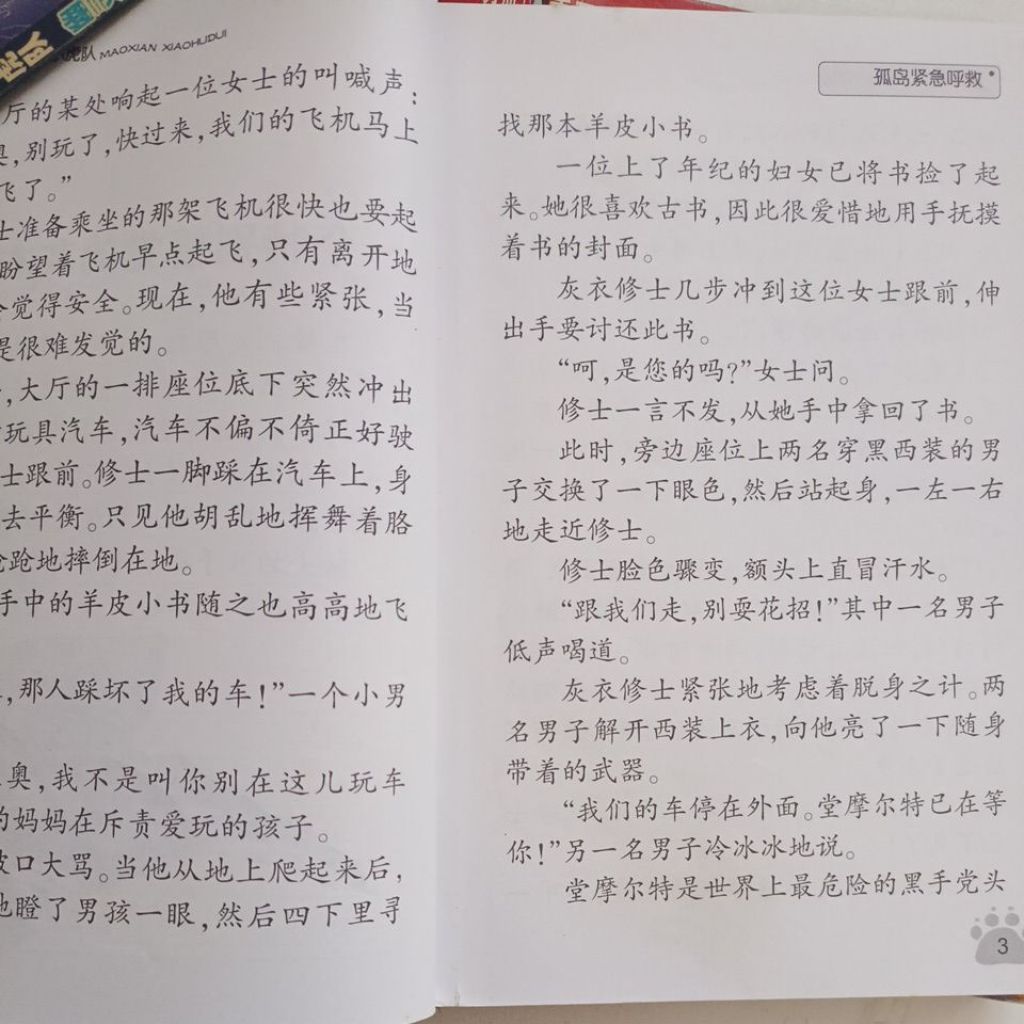 虎队 MAOXIAN XIAOHUDUI
厅的某处响起一位女士的叫喊声：
奥，别玩了，快过来，我们的飞机马上
飞了。”
士准备乘坐的那架飞机很快也要起
盼望着飞机早点起飞，只有离开地
会觉得安全。现在，他有些紧张，当
是很难发觉的。
，大厅的一排座位底下突然冲出
玩具汽车，汽车不偏不倚正好驶
士跟前。修士一脚踩在汽车上，身
去平衡。只见他胡乱地挥舞着胳
跄地摔倒在地。
手中的羊皮小书随之也高高地飞
，那人踩坏了我的车！”一个小男
奥，我不是叫你别在这儿玩车
的妈妈在斥责爱玩的孩子。
破口大骂。当他从地上爬起来后，
地瞪了男孩一眼，然后四下里寻
孤岛紧急呼救
找那本羊皮小书。
一位上了年纪的妇女已将书捡了起
来。她很喜欢古书，因此很爱惜地用手抚摸
着书的封面。
灰衣修士几步冲到这位女士跟前，伸
出手要讨还此书。
“呵，是您的吗？”女士问。
修士一言不发，从她手中拿回了书。
此时，旁边座位上两名穿黑西装的男
子交换了一下眼色，然后站起身，一左一右
地走近修士。
修士脸色骤变，额头上直冒汗水。
“跟我们走，别耍花招！”其中一名男子
低声喝道。
灰衣修士紧张地考虑着脱身之计。两
名男子解开西装上衣，向他亮了一下随身
带着的武器。
“我们的车停在外面。堂摩尔特已在等
你！”另一名男子冷冰冰地说。
堂摩尔特是世界上最危险的黑手党头
3